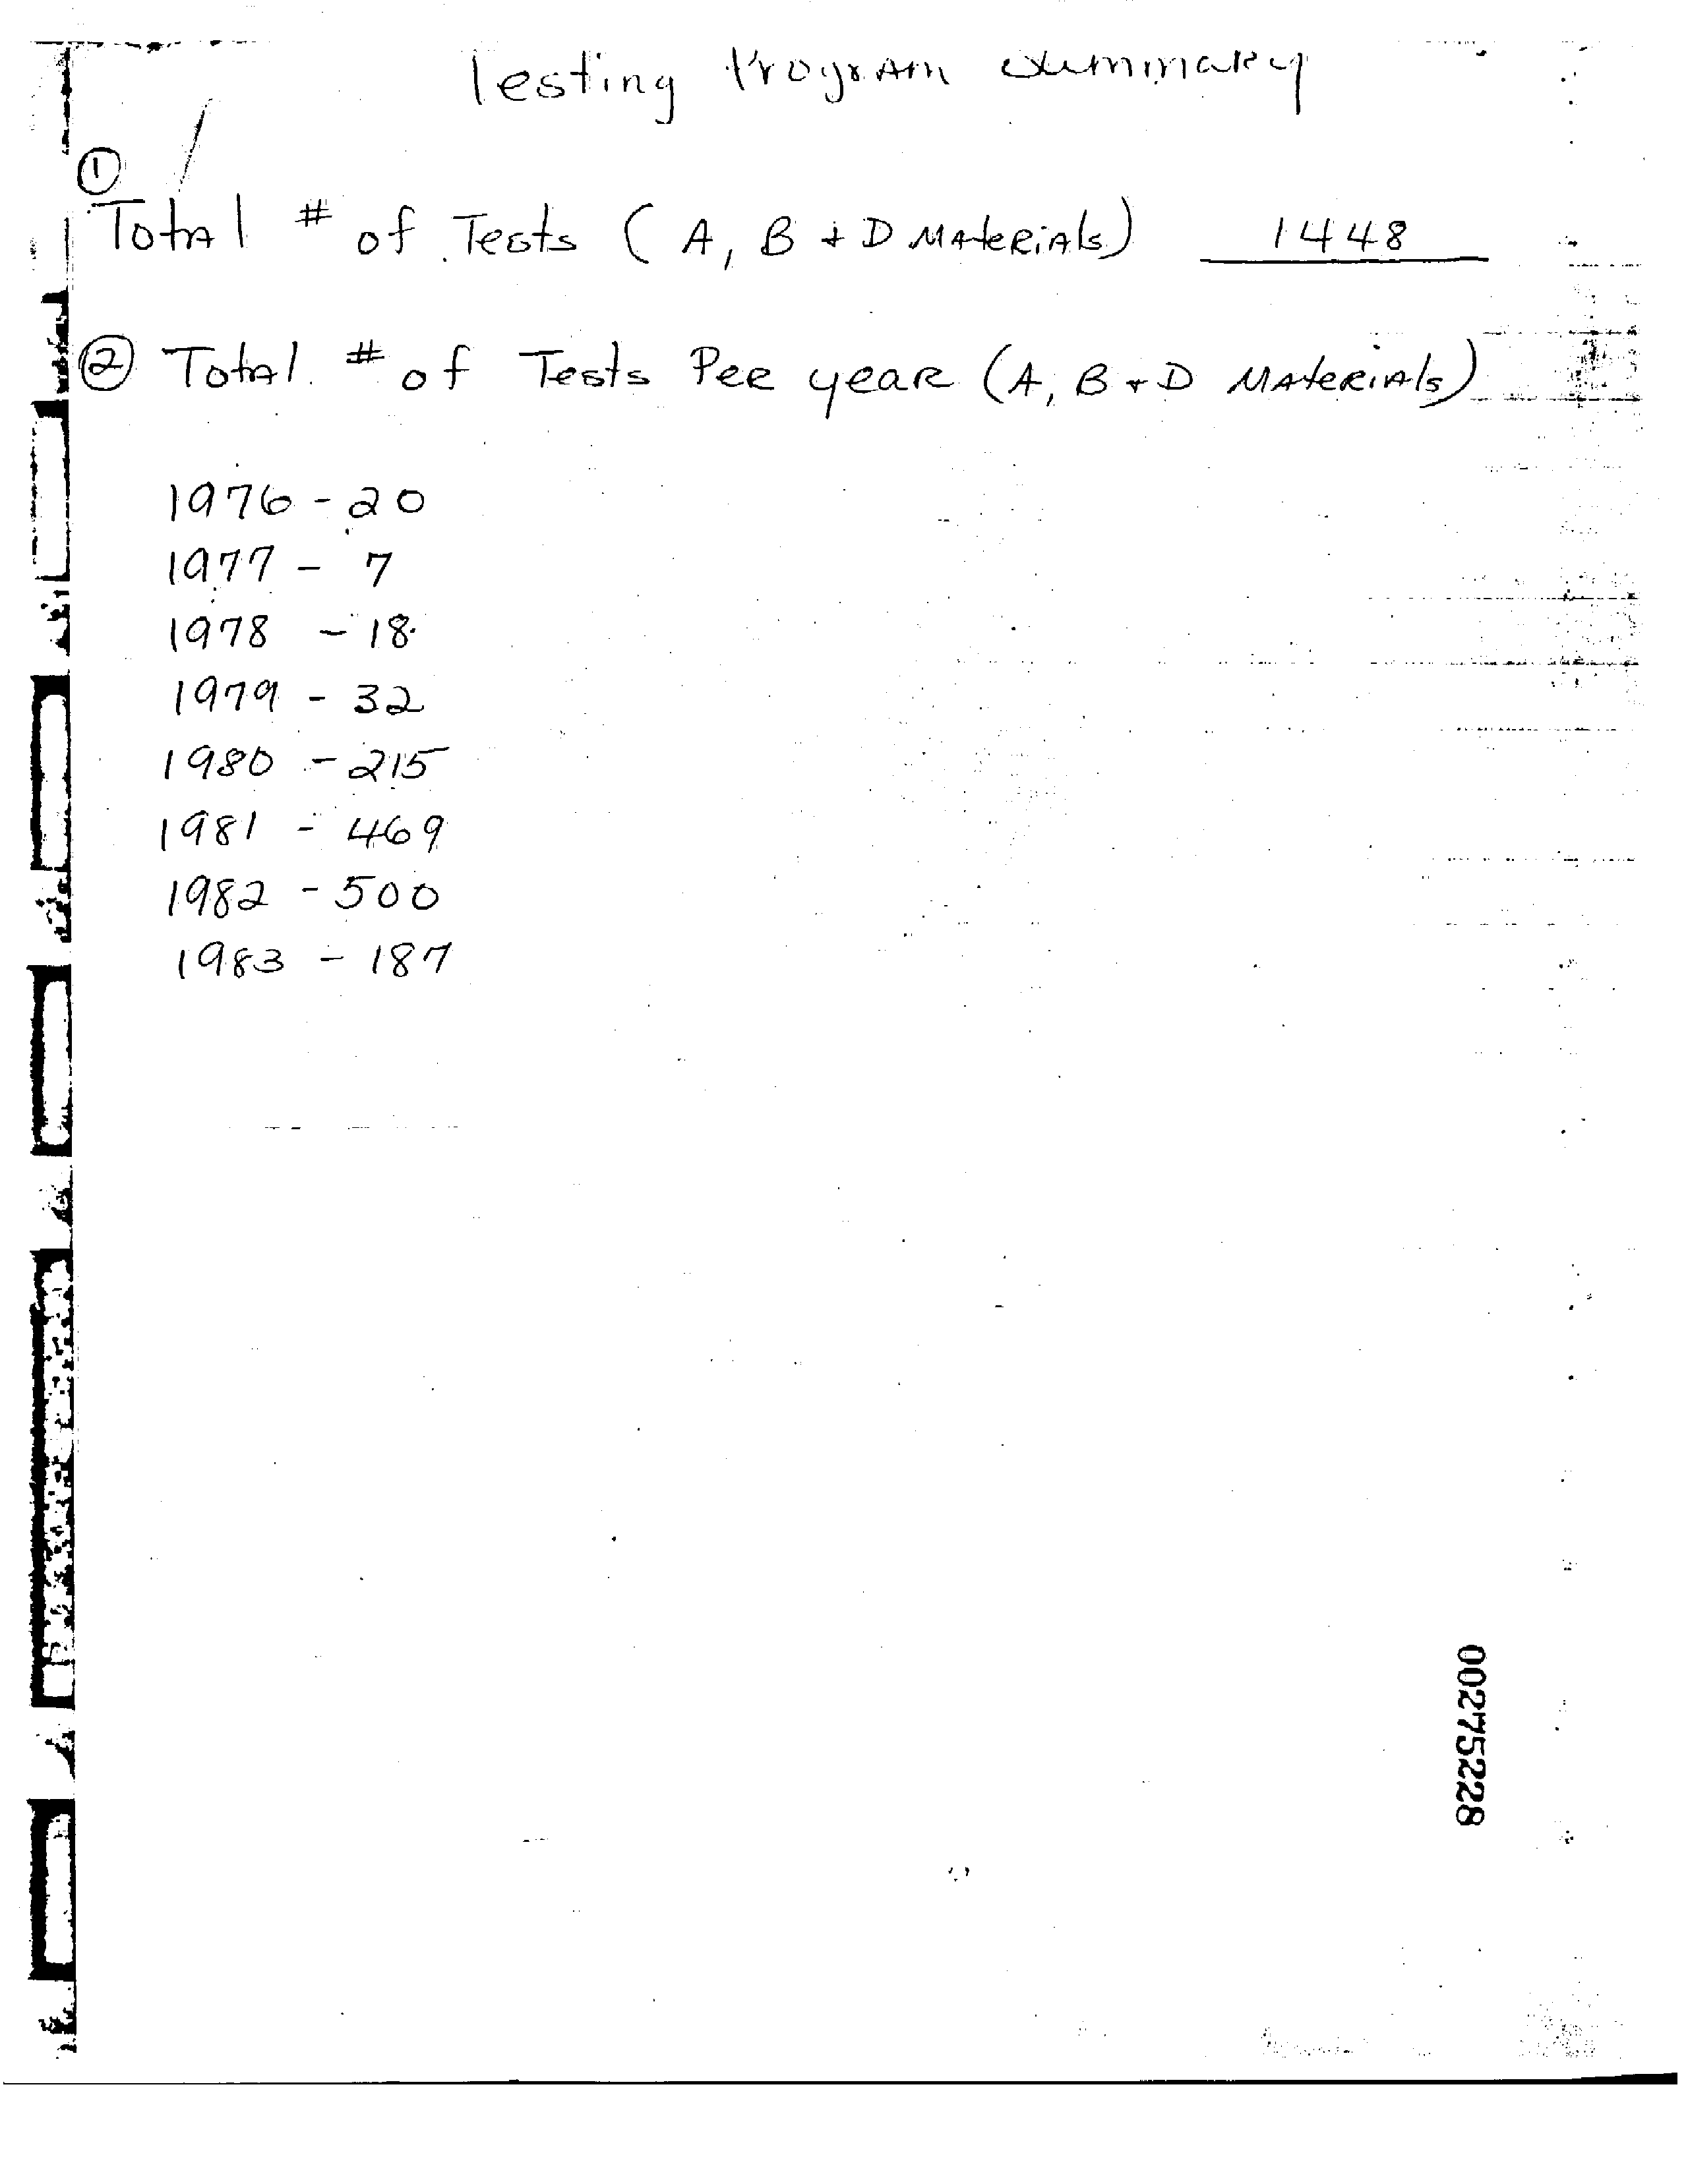 Testing Program Summary
①
Total # of Tests (A, B + D Materials) 1448
② Total # of Tests Per year (A, B + D Materials)
1976 - 20
1977 - 7
1978 - 18
1979 - 32
1980 - 215
1981 - 469
1982 - 500
1983 - 187
00275228